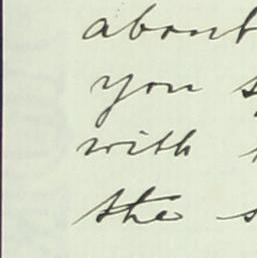 about
you
with
the